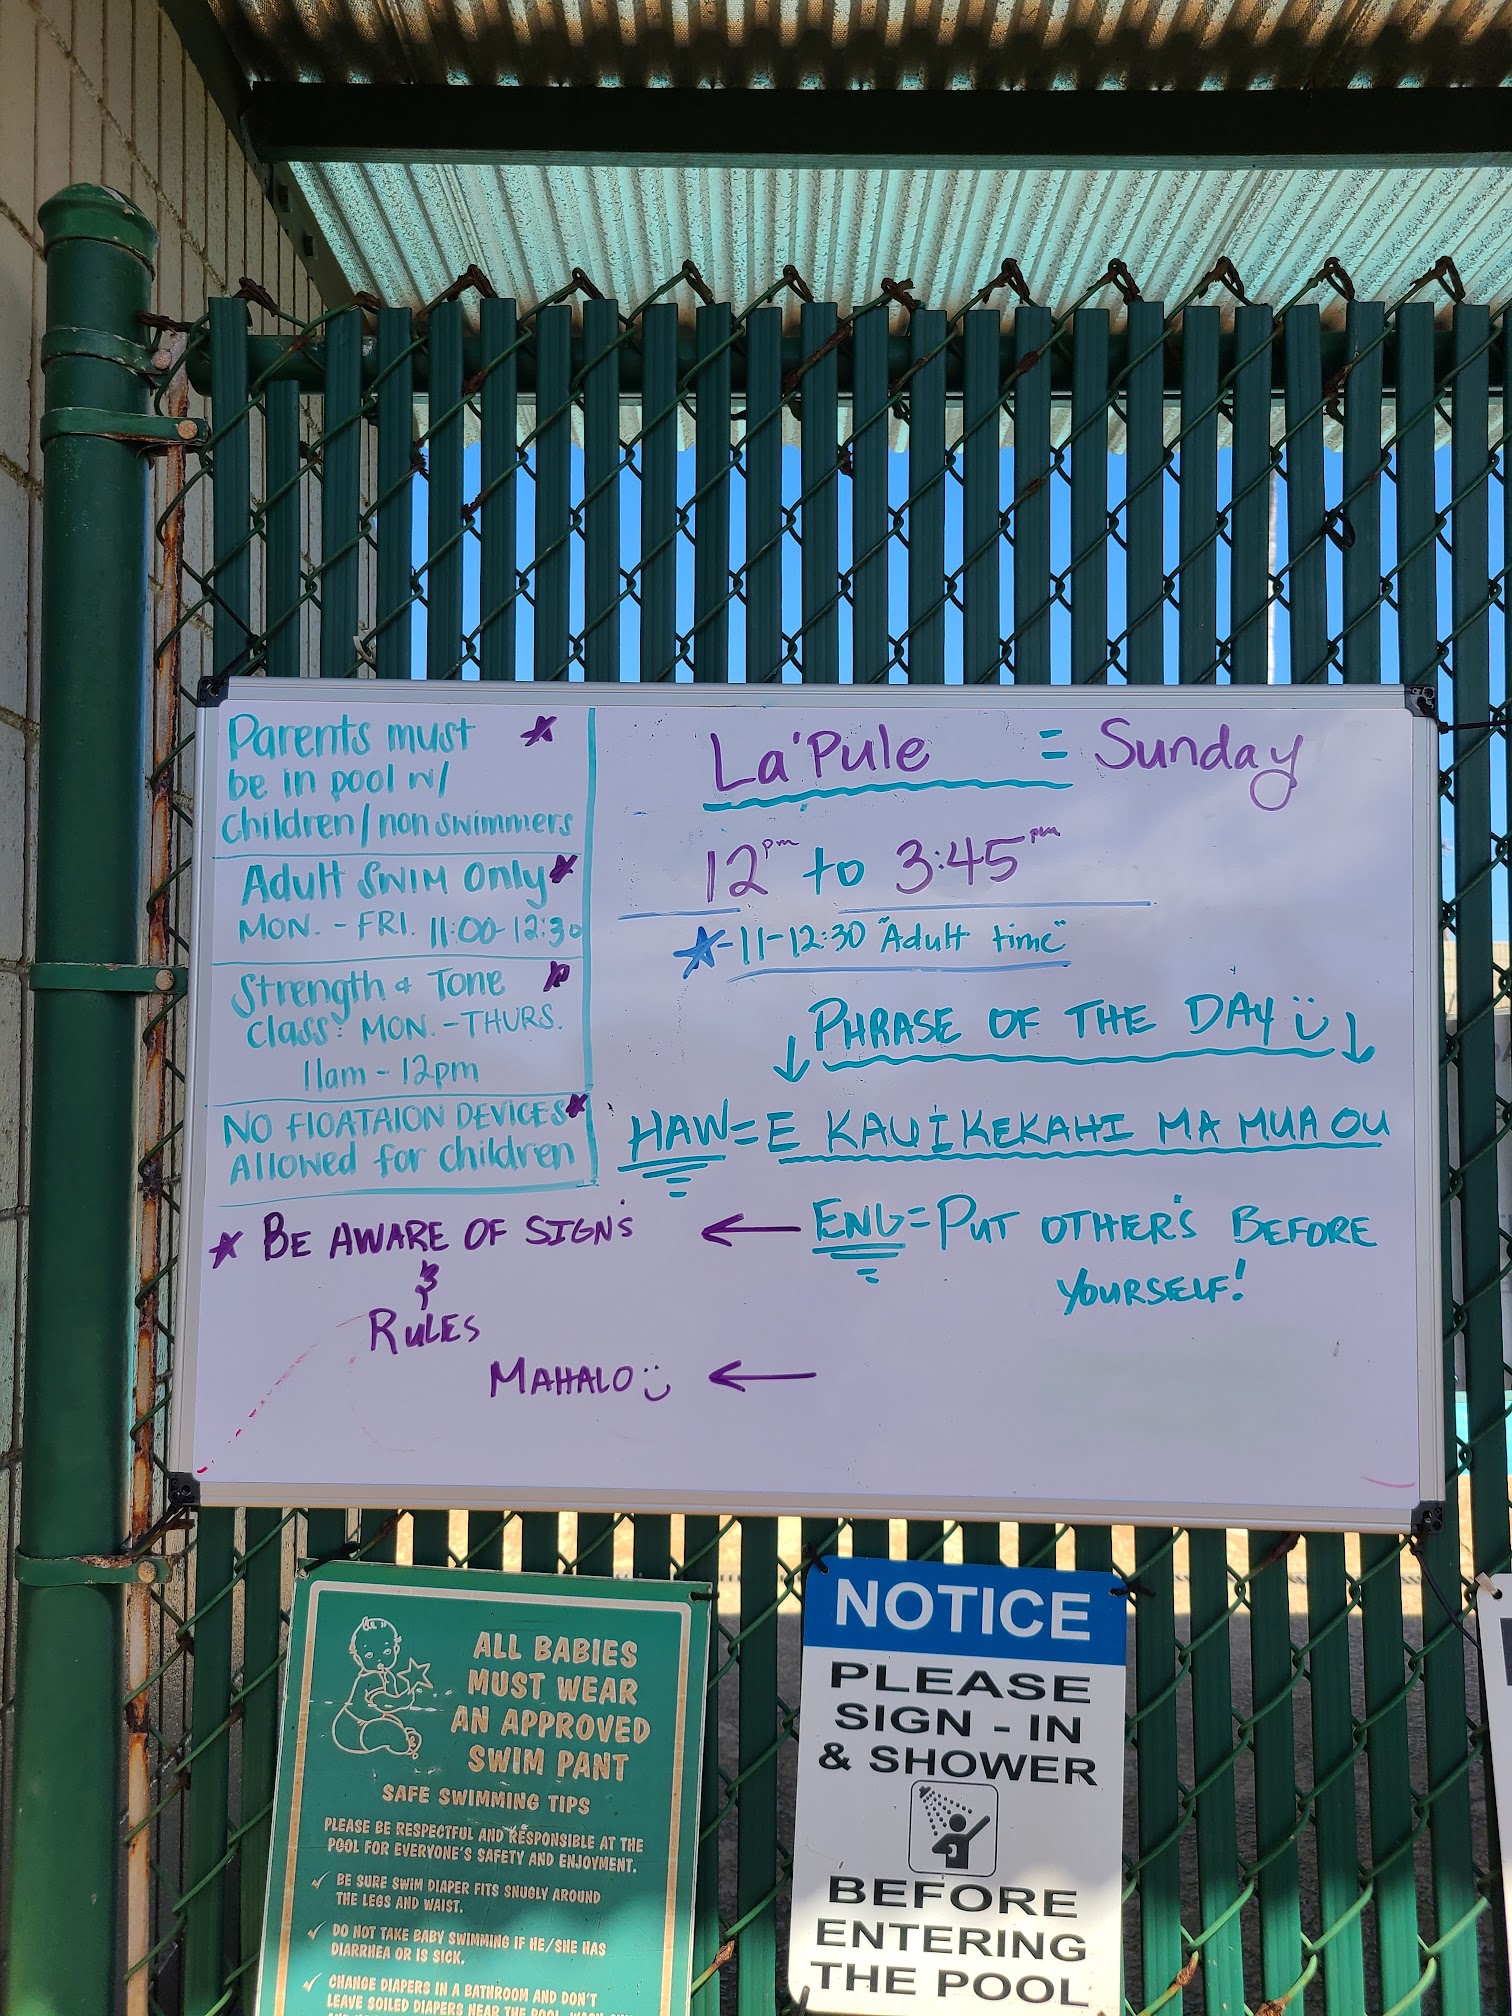 Parents must
be in pool w/
children/non swimmers
Adult SWIM Only
MON. - FRI. 11:00-12:30
Strength & Tone
class: MON. - THURS.
11am - 12pm
NO FlOATAION DEVICES
Allowed for children
BE AWARE OF SIGN'S
&
RULES
MAHALO
La'Pule = Sunday
12pm to 3:45pm
-11-12:30 "Adult time"
PHRASE OF THE DAY
HAW = E KAU I KEKAHI MA MUA OU
ENG = PUT OTHER'S BEFORE
YOURSELF!
ALL BABIES
MUST WEAR
AN APPROVED
SWIM PANT
SAFE SWIMMING TIPS
PLEASE BE RESPECTFUL AND RESPONSIBLE AT THE
POOL FOR EVERYONE'S SAFETY AND ENJOYMENT.
✓ BE SURE SWIM DIAPER FITS SNUGLY AROUND
THE LEGS AND WAIST.
✓ DO NOT TAKE BABY SWIMMING IF HE/SHE HAS
DIARRHEA OR IS SICK.
✓ CHANGE DIAPERS IN A BATHROOM AND DON'T
LEAVE SOILED DIAPERS NEAR THE POOL.
NOTICE
PLEASE
SIGN - IN
& SHOWER
BEFORE
ENTERING
THE POOL